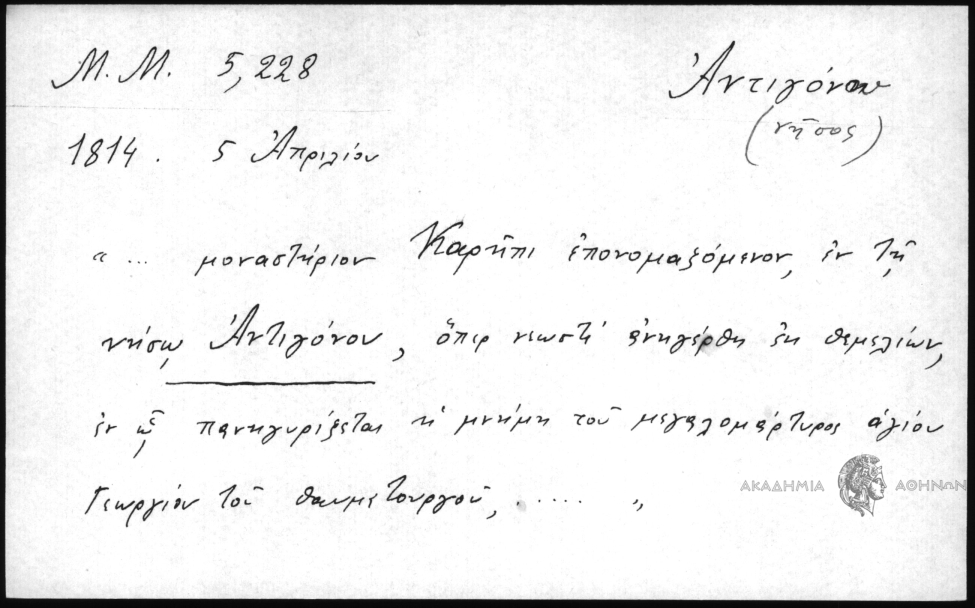 Μ.Μ. 5,228
Ἀντιγόνου
(νῆσος)
1814. 5 Ἀπριλίου
"... μοναστήριον Καρῆπι ἐπονομαζόμενον, ἐν τῇ
νήσῳ Ἀντιγόνου, ὅπερ νεωστί ἀνηγέρθη ἐκ θεμελίων,
ἐν ᾧ πανηγυρίζεται ἡ μνήμη τοῦ μεγαλομάρτυρος ἁγίου
Γεωργίου τοῦ θαυματουργοῦ, ..... "
ΑΚΑΔΗΜΙΑ ΑΘΗΝΩΝ